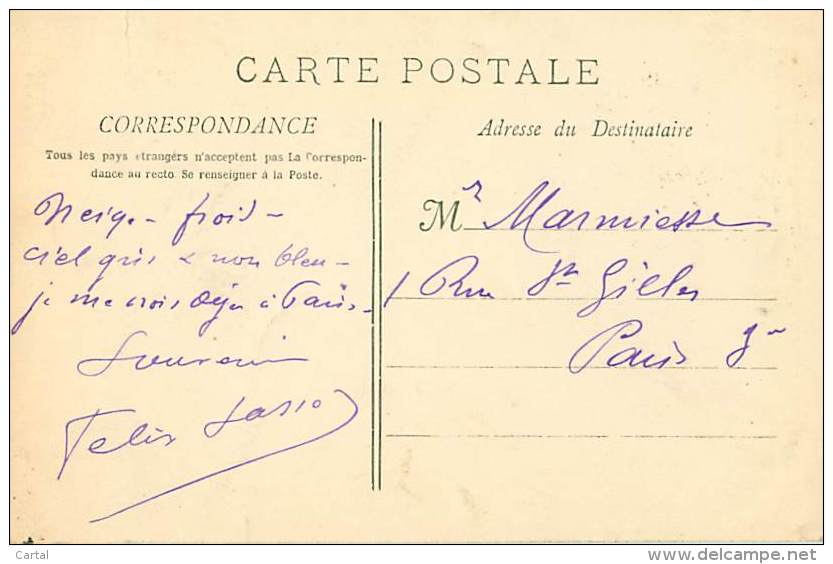 CARTE POSTALE
CORRESPONDANCE
Tous les pays étrangérs n'acceptent pas La Correspon-
dance au recto Se renseigner á la Poste.
Neige - froid -
Ciel gris & non bleu -
je me crois déja à Paris -
Souvenir
Felix
Adresse du Destinataire
Mr Marmiesse
1 Rue St Gilles
Paris 3e
Cartal
delcampe.net